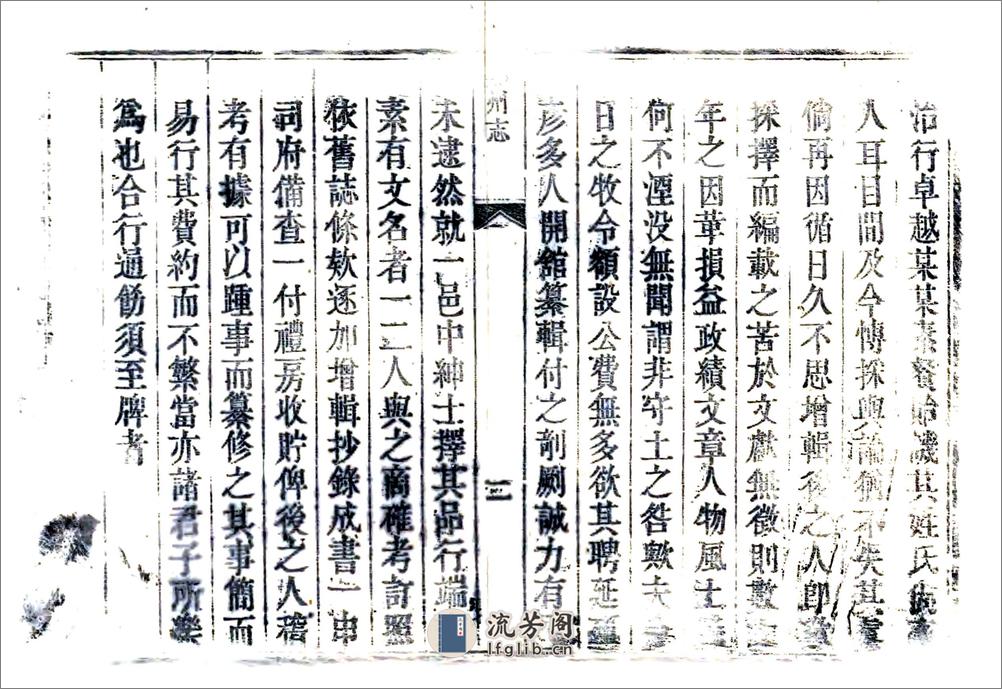 治行卓越某某素餐貽譏其姓氏
人耳目間及今博採輿論猶不失其
倘再因循日久不思增輯後之人即
採擇而編載之苦於文獻無徵則數
年之因革損益政績文章人物風土
何不湮没無聞謂非守土之咎歟夫
日之牧令額設公費無多欲其聘延
彥多人開舘纂輯付之剞劂誠力有
州志
三
未逮然就一邑中紳士擇其品行端
素有文名者一二人與之商確考訂照
依舊誌條欵逐加增輯抄錄成書一申
司府備查一付禮房收貯俾後之人稽
考有據可以踵事而纂修之其事簡而
易行其費約而不繁當亦諸君子所樂
爲也合行通飭須至牌者
流芳阁
lfglib.cn